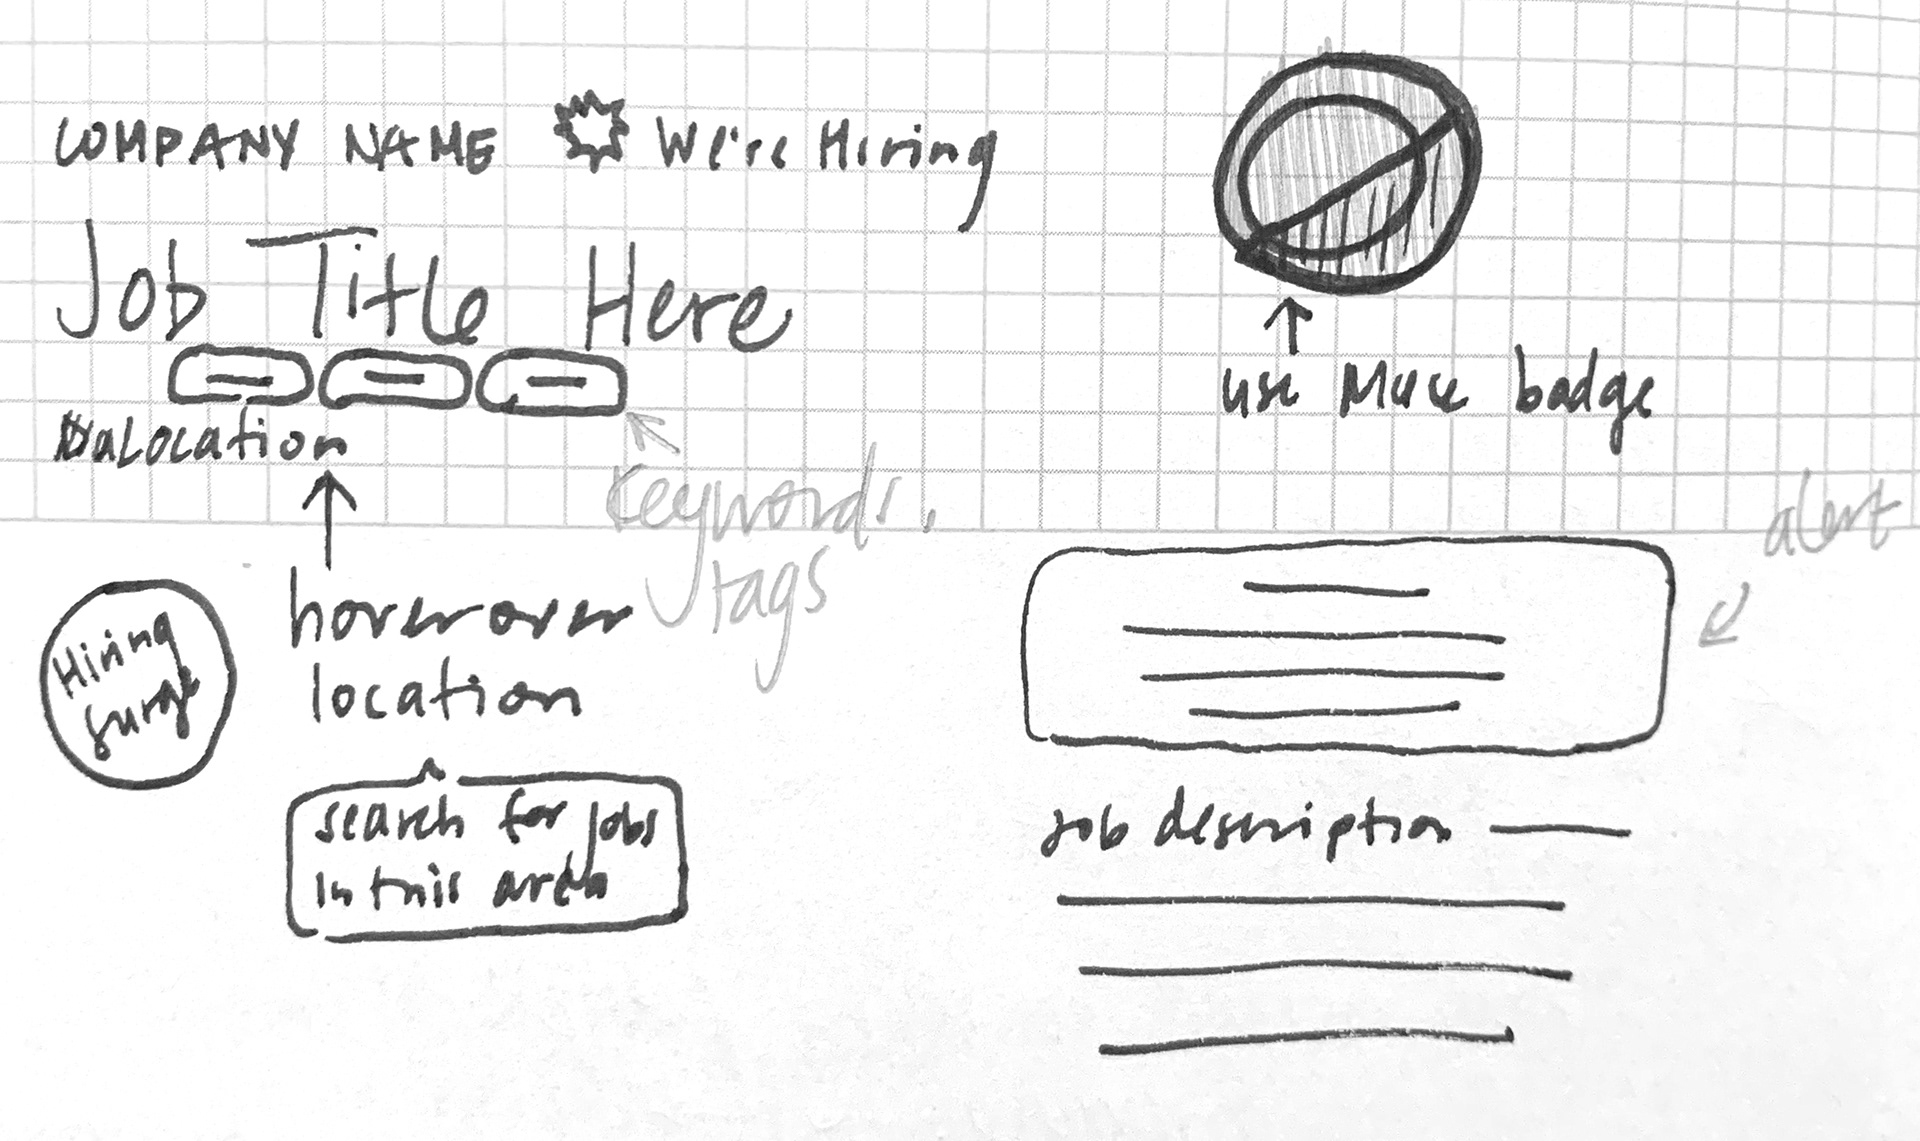 COMPANY NAME We're Hiring
Job Title Here
Location
Keywords,
tags
use Muse badge
alert
Hiring
surge
hover over
location
search for jobs
in this area
Job description